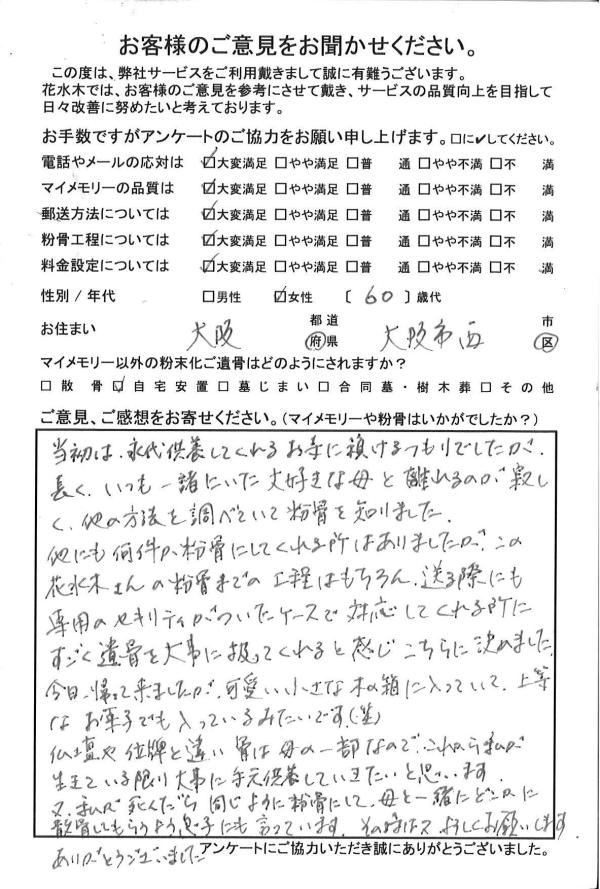 お客様のご意見をお聞かせください。
この度は、弊社サービスをご利用戴きまして誠に有難うございます。
花水木では、お客様のご意見を参考にさせて戴き、サービスの品質向上を目指して
日々改善に努めたいと考えております。
お手数ですがアンケートのご協力をお願い申し上げます。□に✔してください。
電話やメールの応対は ☑大変満足 □やや満足 □普 通 □やや不満 □不 満
マイメモリーの品質は ☑大変満足 □やや満足 □普 通 □やや不満 □不 満
郵送方法については ☑大変満足 □やや満足 □普 通 □やや不満 □不 満
粉骨工程については ☑大変満足 □やや満足 □普 通 □やや不満 □不 満
料金設定については ☑大変満足 □やや満足 □普 通 □やや不満 □不 満
性別 / 年代 □男性 ☑女性 〔 60 〕歳代
お住まい 大阪 都道府県 大阪市西 市区
マイメモリー以外の粉末化ご遺骨はどのようにされますか？
□散 骨 ☑自宅安置 □墓じまい □合同墓・樹木葬 □その他
ご意見、ご感想をお寄せください。(マイメモリーや粉骨はいかがでしたか？)
当初は、永代供養してくれるお寺に預けるつもりでしたが、
長く、いつも一諸にいた大好きな母と離れるのが寂し
く、他の方法を調べていて粉骨を知りました。
他にも何件か粉骨にしてくれる所はありましたが、この
花水木さんの粉骨までの工程はもちろん、送る際にも
専用のセキリティがついたケースで対応してくれる所に
すごく遺骨を大事に扱ってくれると感じこちらに決めました。
今日、帰って来ましたが、可愛い小さな木の箱に入っていて、上等
なお菓子でも入っているみたいです。(笑)
仏壇や位牌と違い骨は母の一部なので、これから私が
生きている限り大事に手元供養していきたいと思います。
又、私が死んだら同じように粉骨にして、母と一緒にどこかに
散骨してもらうよう息子にも言っています。その時はよろしくお願いします
ありがとうございました
アンケートにご協力いただき誠にありがとうございました。